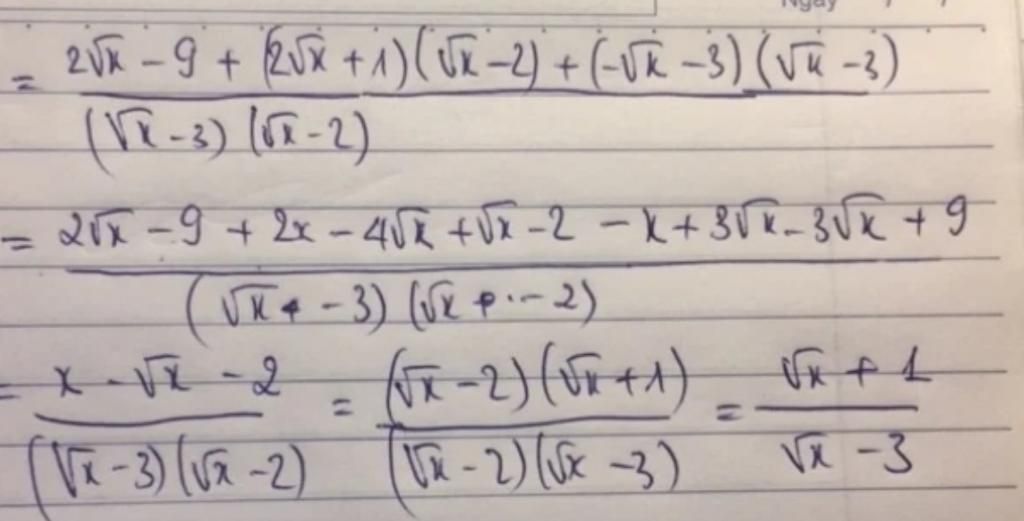 Ngày
= \frac{2\sqrt{x} - 9 + (2\sqrt{x} + 1)(\sqrt{x} - 2) + (-\sqrt{x} - 3)(\sqrt{x} - 3)}{(\sqrt{x} - 3)(\sqrt{x} - 2)}
= \frac{2\sqrt{x} - 9 + 2x - 4\sqrt{x} + \sqrt{x} - 2 - x + 3\sqrt{x} - 3\sqrt{x} + 9}{(\sqrt{x} - 3)(\sqrt{x} - 2)}
= \frac{x - \sqrt{x} - 2}{(\sqrt{x} - 3)(\sqrt{x} - 2)} = \frac{(\sqrt{x} - 2)(\sqrt{x} + 1)}{(\sqrt{x} - 2)(\sqrt{x} - 3)} = \frac{\sqrt{x} + 1}{\sqrt{x} - 3}